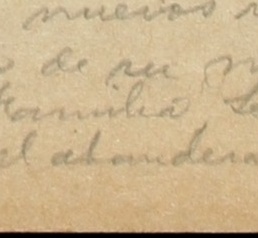 nuevos
de su
familia,
el abandera